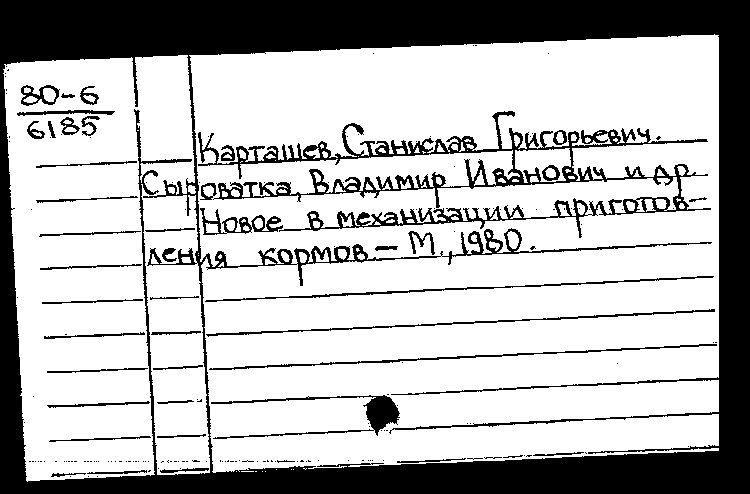 80-6
6185
Карташев, Станислав Григорьевич.
Сыроватка, Владимир Иванович и др.
Новое в механизации приготов-
ления кормов. — М., 1980.